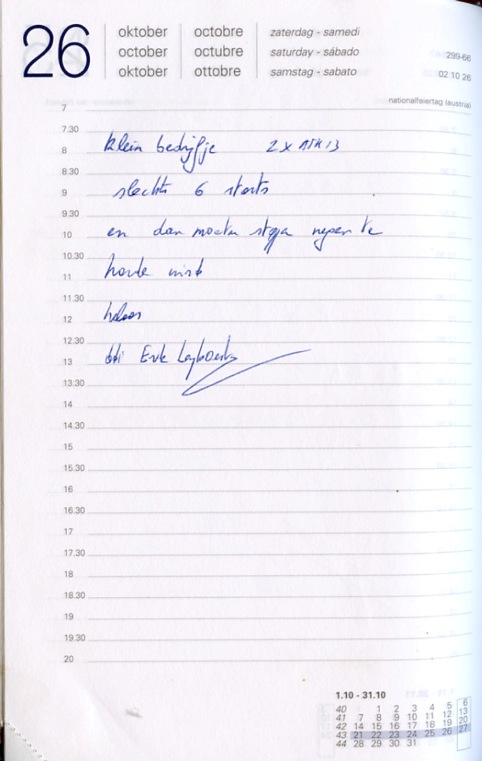 26
oktober octobre zaterdag - samedi
october octubre saturday - sábado 299-66
oktober ottobre samstag - sabato 02 10 26
nationalfeiertag (austria)
7
7.30
8 klein bedrijfje 2 x ASK13
8.30
9 slechts 6 starts
9.30
10 en dan moeten
10.30
11
11.30
12 helaas
12.30
13 ddi Erik
13.30
14
14.30
15
15.30
16
16.30
17
17.30
18
18.30
19
19.30
20
1.10 - 31.10
40 1 2 3 4 5 6
41 7 8 9 10 11 12 13
42 14 15 16 17 18 19 20
43 21 22 23 24 25 26 27
44 28 29 30 31